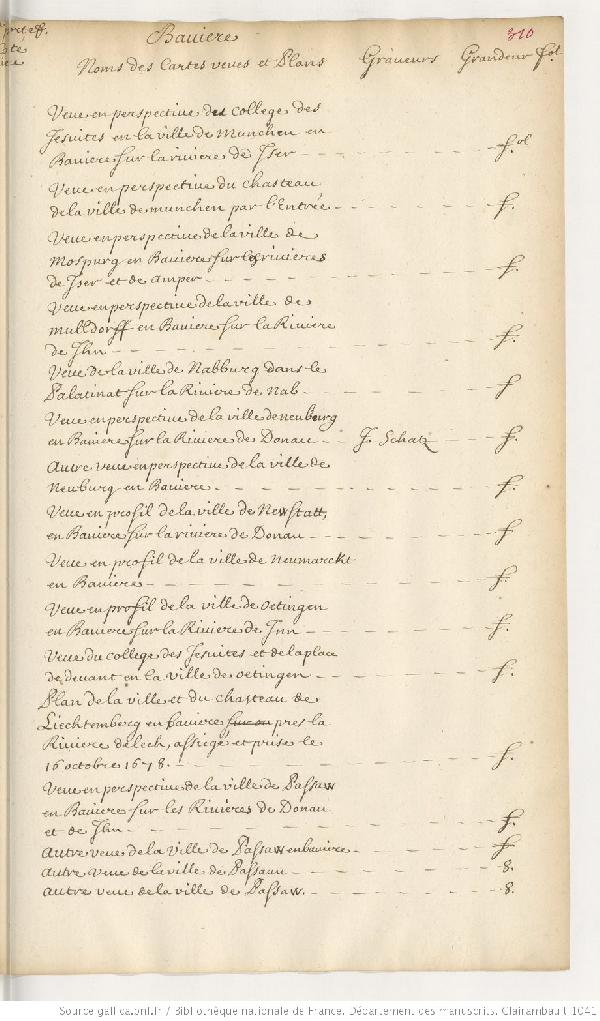 Baviere 310
Noms des Cartes veues et Plans Graveurs Grandeur fol.
Veue en perspective des college des
Jesuites en la ville de Munchen en
Baviere sur la riviere de Jser - - - fol
Veue en perspective du chasteau
de la ville de munchen par l'Entrée - - - f.
Veue en perspective de la ville de
Mospurg en Baviere sur les rivieres
de Jser et de amper - - - f.
Veue en perspective de la ville de
mulldorff en Baviere sur la Riviere
de Jhn - - - f.
Veue de la ville de Nabburg dans le
Palatinat sur la Riviere de Nab - - - f
Veue en perspective de la ville de neuburg
en Baviere sur la Riviere de Donau - - J. Schatz - - - f.
Autre veue en perspective de la ville de
Neuburg en Baviere - - - f.
Veue en profil de la ville de Newstatt,
en Baviere sur la riviere de Donau - - - f
Veue en profil de la ville de Neumarckt
en Baviere - - - f.
Veue en profil de la ville de oetingen
en Baviere sur la Riviere de Jnn - - - f.
Veue du college des Jesuites et de la place
de devant en la ville de oetingen - - - f.
Plan de la ville et du chasteau de
Liechtemberg en baviere pres la
Riviere de lech, assiegé et prise le
16 octobre 1678. - - - f.
Veue en perspective de la ville de Passaw
en Baviere sur les Rivieres de Donau
et de Jhn - - - f.
Autre veue de la Ville de Passaw en baviere - - - f
Autre veue de la ville de Passau - - - 8.
autre veue de la ville de Passaw. - - - 8.
Source gallica.bnf.fr / Bibliothèque nationale de France. Département des manuscrits. Clairambault 1041